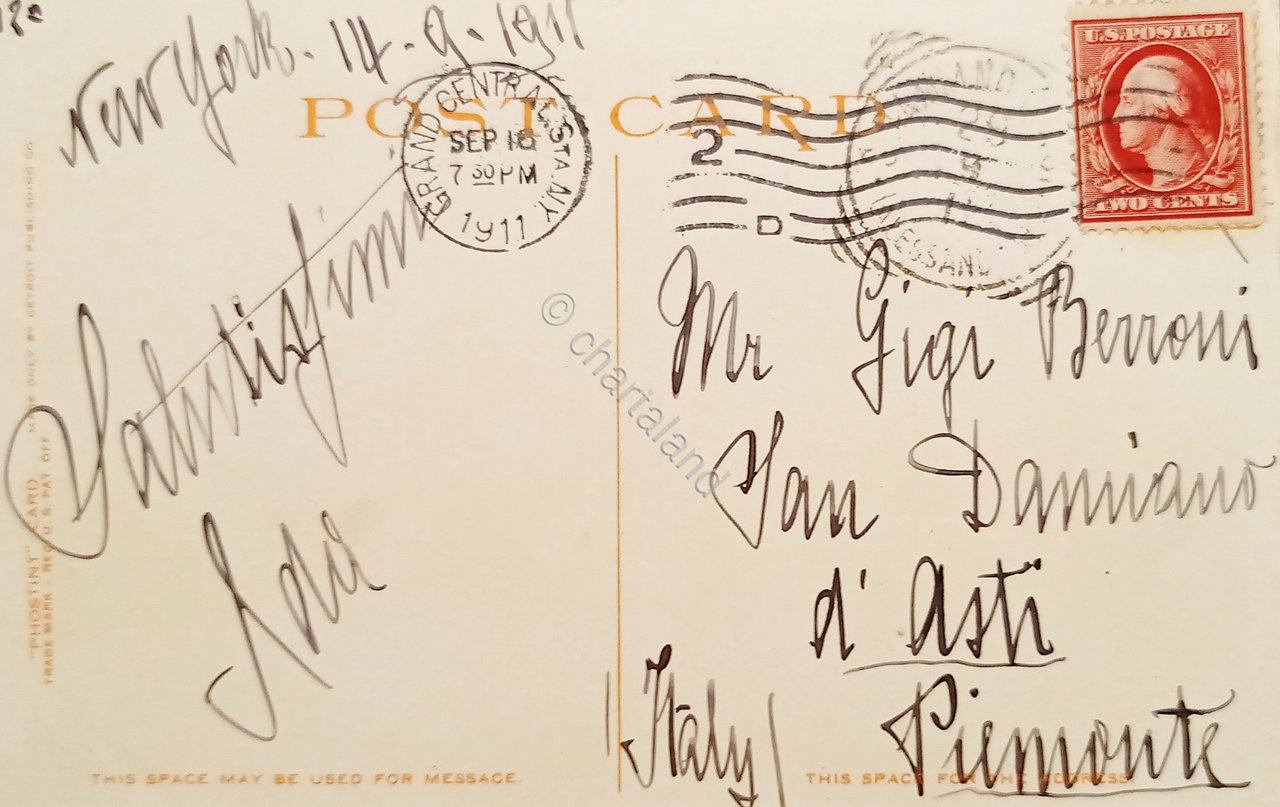 New York. 14-9-1911
POST CARD
GRAND CENTRAL STA. N.Y.
SEP 16
7 30 PM
1911
2
D
U.S. POSTAGE
TWO CENTS
Salutissimi
Mr Gigi Berroni
San Damiano
d'Asti
Piemonte
(Italy)
"PHOSTINT" CARD MADE ONLY BY DETROIT PUBLISHING CO.
TRADE MARK - REG. U.S. PAT. OFF.
THIS SPACE MAY BE USED FOR MESSAGE.
THIS SPACE FOR THE ADDRESS
© chartaland